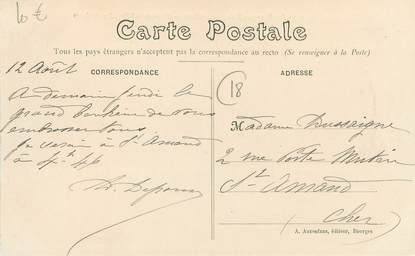 10 €
Carte Postale
Tous les pays étrangers n'acceptent pas la correspondance au recto (Se renseigner à la Poste)
CORRESPONDANCE
12 Août
A demain jeudi le
grand bonheur de vous
embrasser tous
je serai à St Amand
à 4h 46
ADRESSE
18
Madame Dussaigne
2 rue Porte Mutin
St Amand
Cher
A. Auxenfans, éditeur, Bourges